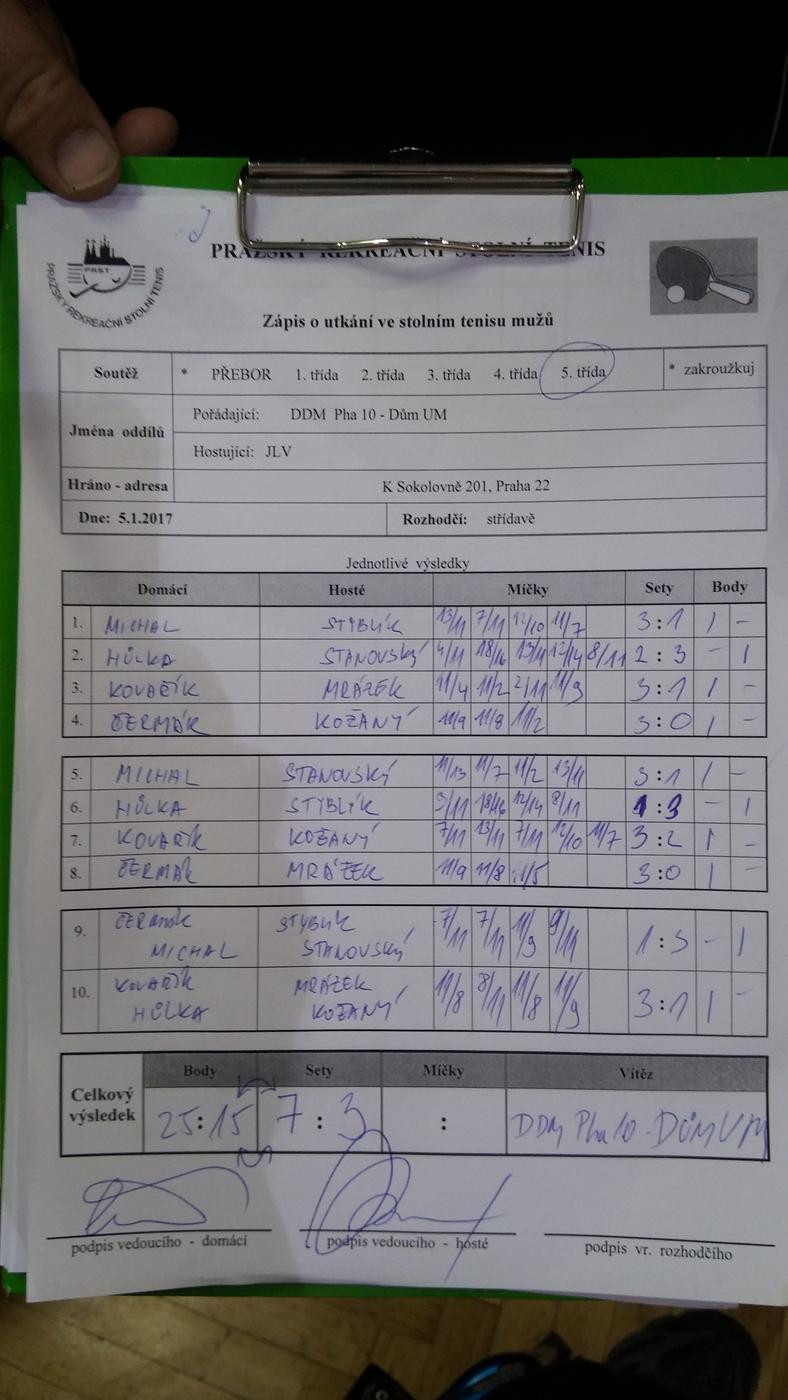 PRAŽSKÝ REKREAČNÍ STOLNÍ TENIS
PRST
PRAŽSKÝ REKREAČNÍ STOLNÍ TENIS
Zápis o utkání ve stolním tenisu mužů
Soutěž * PŘEBOR 1. třída 2. třída 3. třída 4. třída 5. třída * zakroužkuj
Jména oddílů
Pořádající: DDM Pha 10 - Dům UM
Hostující: JLV
Hráno - adresa K Sokolovně 201, Praha 22
Dne: 5.1.2017 Rozhodčí: střídavě
Jednotlivé výsledky
Domácí Hosté Míčky Sety Body
1. MICHAL STYBLÍK 13/11 7/11 12/10 11/7 3:1 1 -
2. HŮLKA STANOVSKÝ 4/11 18/16 13/11 12/14 8/11 2:3 - 1
3. KOVAŘÍK MRÁZEK 11/4 11/2 2/11 11/9 3:1 1 -
4. ČERMÁK KOŽANÝ 11/8 11/2 3:0 1 -
5. MICHAL STANOVSKÝ 11/13 11/7 11/2 13/11 3:1 1 -
6. HŮLKA STYBLÍK 18/16 12/14 8/11 1:3 - 1
7. KOVAŘÍK KOŽANÝ 7/11 13/11 7/11 12/10 11/7 3:2 1 -
8. ČERMÁK MRÁZEK 11/9 11/8 11/5 3:0 1 -
9. ČERMÁK STYBLÍK 7/11 7/11 11/9 9/11 1:3 - 1
MICHAL STANOVSKÝ
10. KOVAŘÍK MRÁZEK 11/8 8/11 11/8 11/9 3:1 1 -
HŮLKA KOŽANÝ
Celkový výsledek
Body Sety Míčky Vítěz
25:15 7:3 : DDM Pha 10 - DŮM UM
podpis vedoucího - domácí podpis vedoucího - hosté podpis vr. rozhodčího